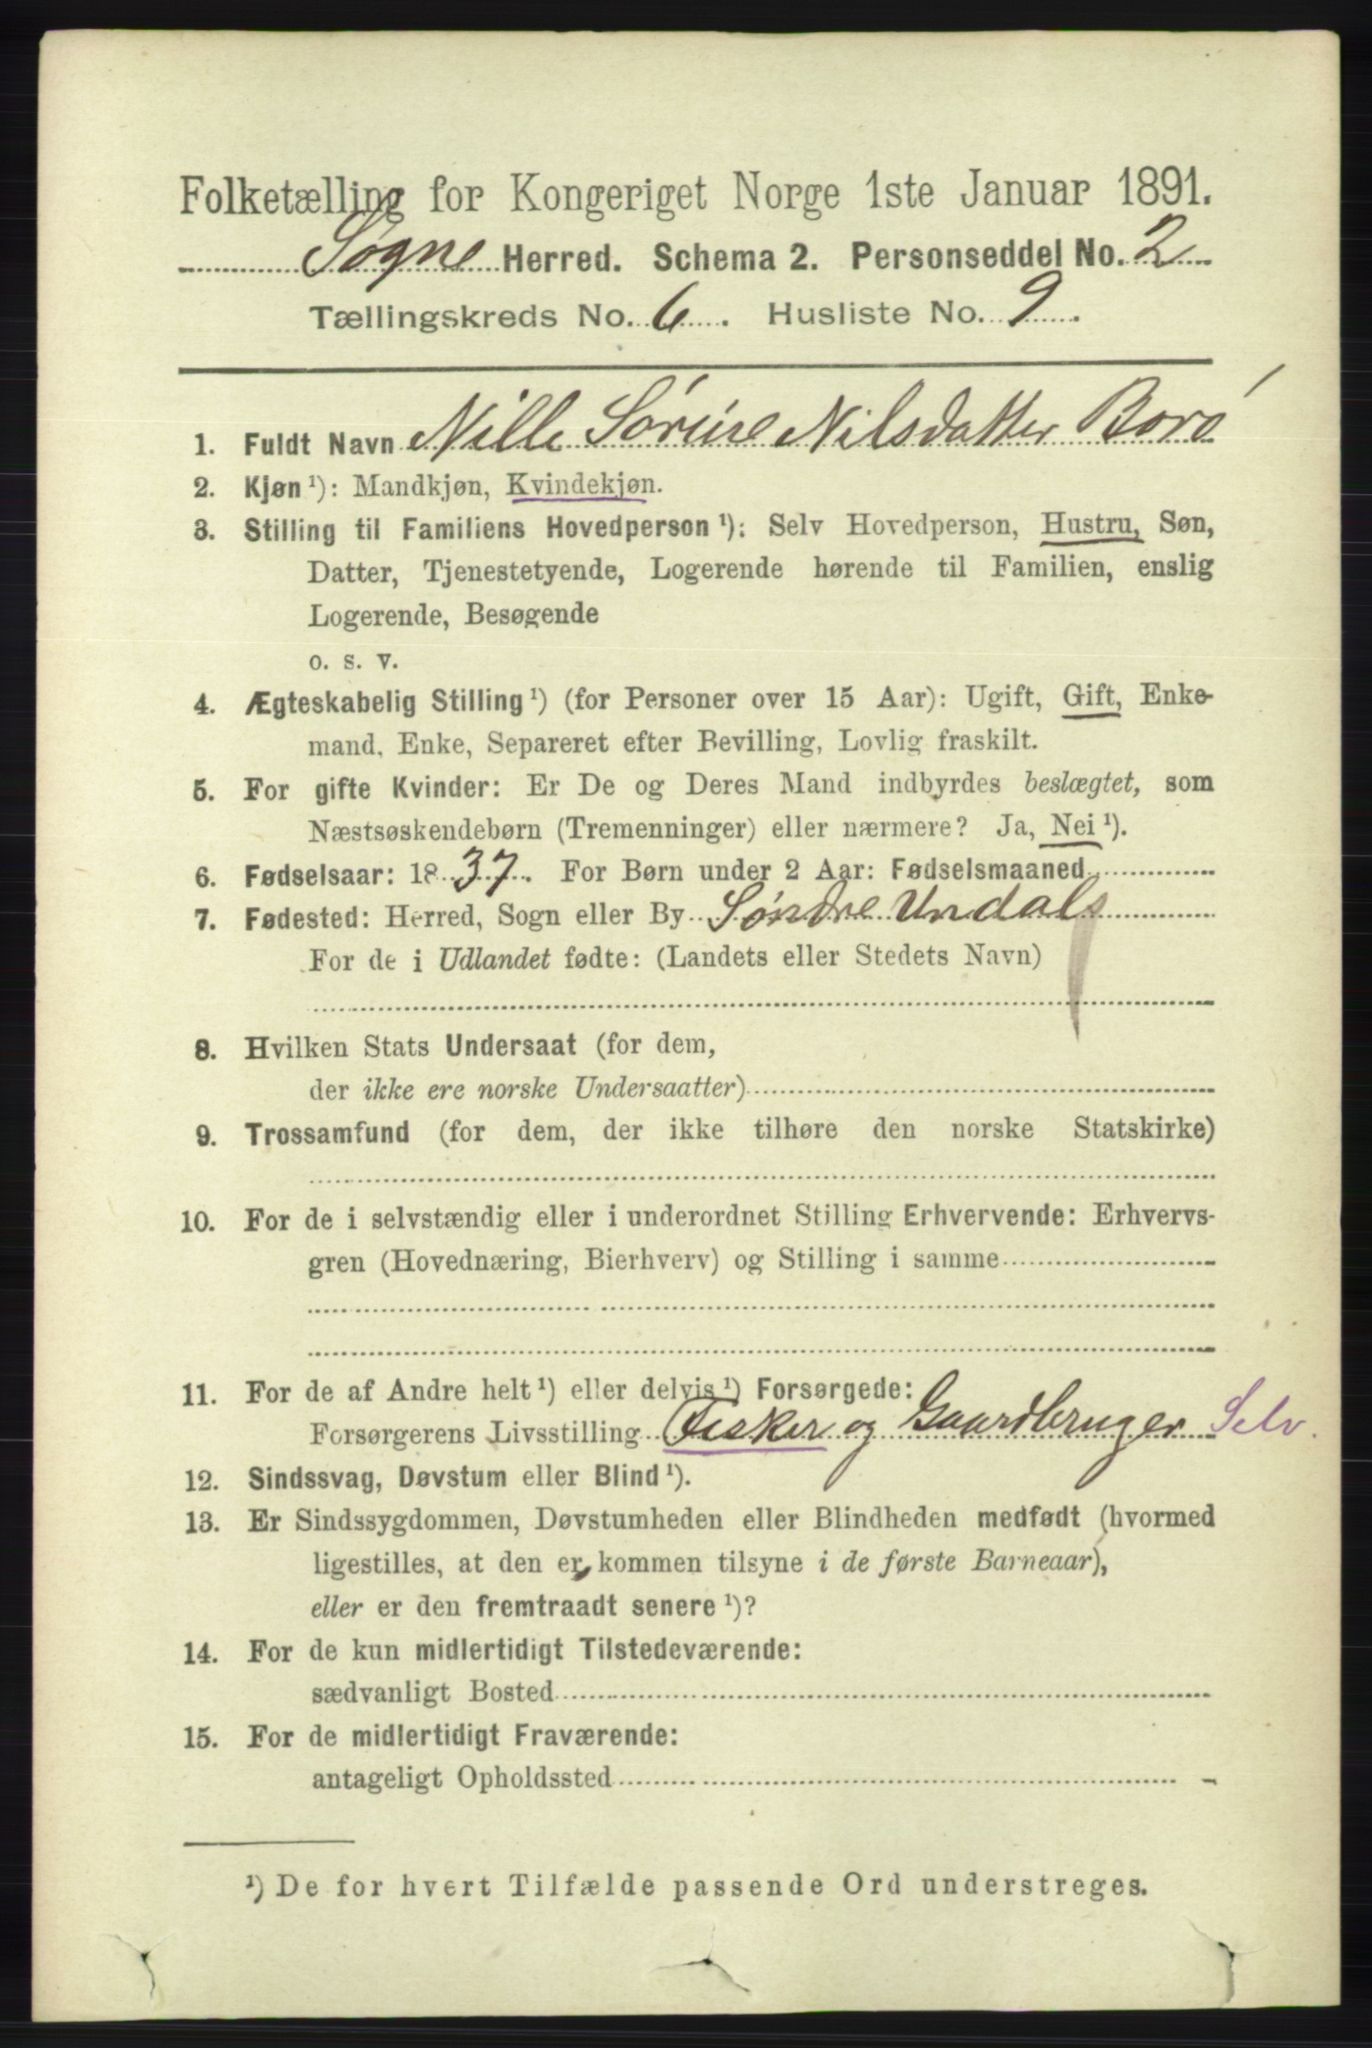 Folketælling for Kongeriget Norge 1ste Januar 1891.
Søgne Herred. Schema 2. Personseddel No. 2
Tællingskreds No. 6. Husliste No. 9.
1. Fuldt Navn Nille Sørine Nilsdatter Borö
2. Kjøn ¹): Mandkjøn, Kvindekjøn.
3. Stilling til Familiens Hovedperson ¹): Selv Hovedperson, Hustru, Søn,
Datter, Tjenestetyende, Logerende hørende til Familien, enslig
Logerende, Besøgende
o. s. v.
4. Ægteskabelig Stilling ¹) (for Personer over 15 Aar): Ugift, Gift, Enke-
mand, Enke, Separeret efter Bevilling, Lovlig fraskilt.
5. For gifte Kvinder: Er De og Deres Mand indbyrdes beslægtet, som
Næstsøskendebørn (Tremenninger) eller nærmere? Ja, Nei ¹).
6. Fødselsaar: 1837. For Børn under 2 Aar: Fødselsmaaned
7. Fødested: Herred, Sogn eller By Søndre Undals
For de i Udlandet fødte: (Landets eller Stedets Navn)
8. Hvilken Stats Undersaat (for dem,
der ikke ere norske Undersaatter)
9. Trossamfund (for dem, der ikke tilhøre den norske Statskirke)
10. For de i selvstændig eller i underordnet Stilling Erhvervende: Erhvervs-
gren (Hovednæring, Bierhverv) og Stilling i samme
11. For de af Andre helt ¹) eller delvis ¹) Forsørgede:
Forsørgerens Livsstilling Fisker og Gaardbruger Selv.
12. Sindssvag, Døvstum eller Blind ¹).
13. Er Sindssygdommen, Døvstumheden eller Blindheden medfødt (hvormed
ligestilles, at den er kommen tilsyne i de første Barneaar),
eller er den fremtraadt senere ¹)?
14. For de kun midlertidigt Tilstedeværende:
sædvanligt Bosted
15. For de midlertidigt Fraværende:
antageligt Opholdssted
¹) De for hvert Tilfælde passende Ord understreges.